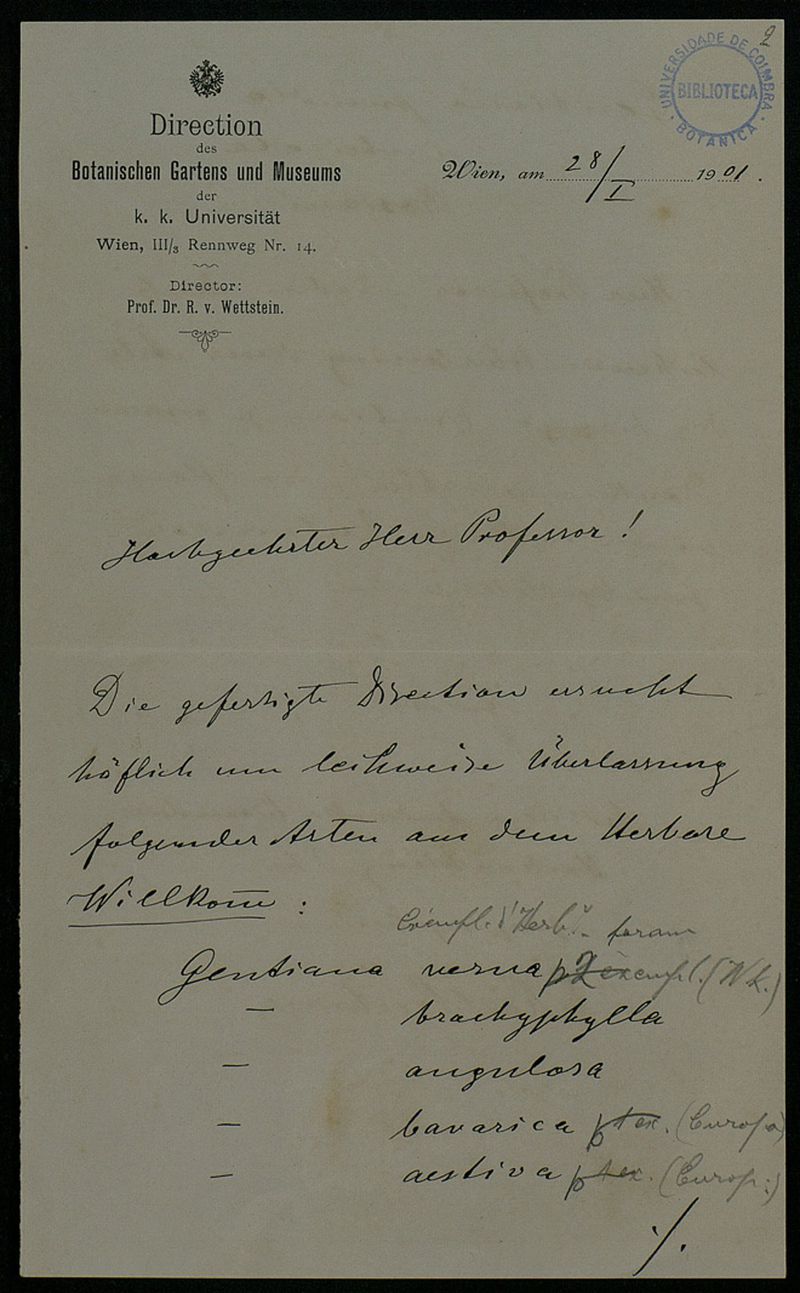 2
UNIVERSIDADE DE COIMBRA
BIBLIOTECA
BOTANICA
Direction
des
Botanischen Gartens und Museums
der
k. k. Universität
Wien, III/3 Rennweg Nr. 14.
Director:
Prof. Dr. R. v. Wettstein.
Wien, am 28/I 1901.
Hochgeehrter Herr Professor!
Die gefertigte Direction ersucht
höflich um leihweise Überlassung
folgender Arten aus dem Herbare
Willkom̅ :
d'Herb. foram
Gentiana verna 2 exempl. (Wk.)
— brachyphylla
— angulosa
— bavarica 1 ex. (Europa)
— aestiva 1 ex. (Europ.)
./.